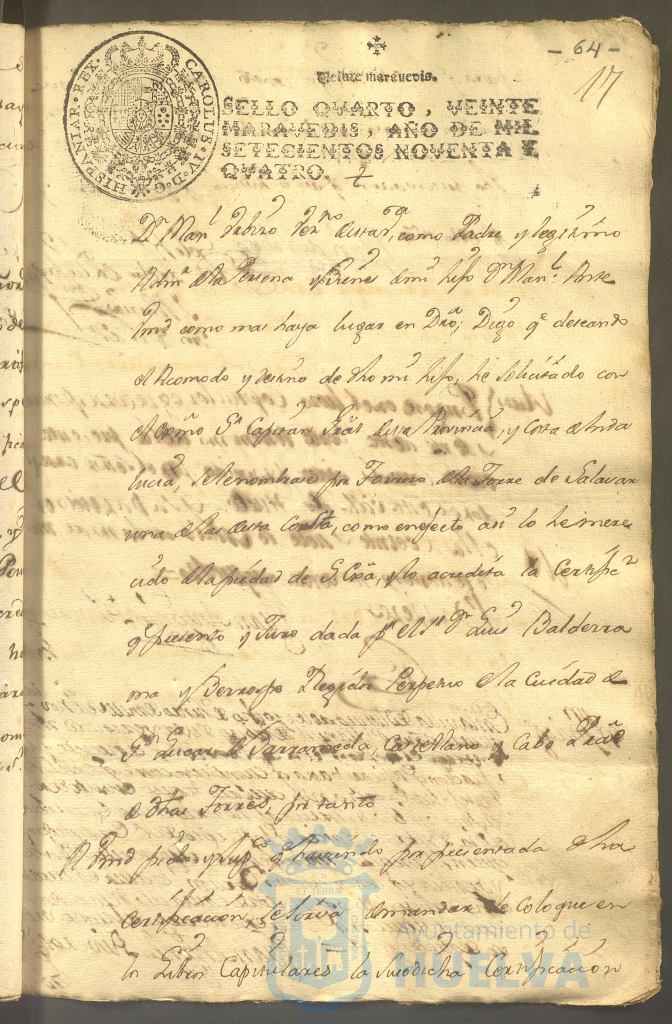 - 64 -
17
HISPANIAR. REX. CAROLUS. IV. D. G.
Veinte maravedis.
SELLO QVARTO, VEINTE
MARAVEDIS, AÑO DE MIL
SETECIENTOS NOVENTA Y
QVATRO.
Dn Manl como Padre y legitimo
Admr dela Persona y Bienes de mi hijo Dn Manl Jose
Vmd como mas haya lugar en Dro; Digo qe deseando
el Acomodo y destino de dho mi hijo, he solicitado con
el exmo Sr Capitan Gral desta Provincia, y Costa de Anda
lucia, sele nombrase pr Torrero dela Torre de Salavar
una delas desta Costa, como en efecto asi lo he mere
cido dela piedad de S. Exa, y lo acredita la Certificn
qe presento y Juro dada pr el Sr Dn Luis Balderra
ma y Berrospe Regidor Perpetuo dela Ciudad de
Sn Lucar de Barrameda, Castellano y Cabo Pral
de dhas Torres, por tanto
A Vmd pido y suppco qe haviendo por presentada dha
Certificacion, se sirva de mandar se coloque en
los Libros Capitulares la susodicha Certificacion
Ayuntamiento de
HUELVA